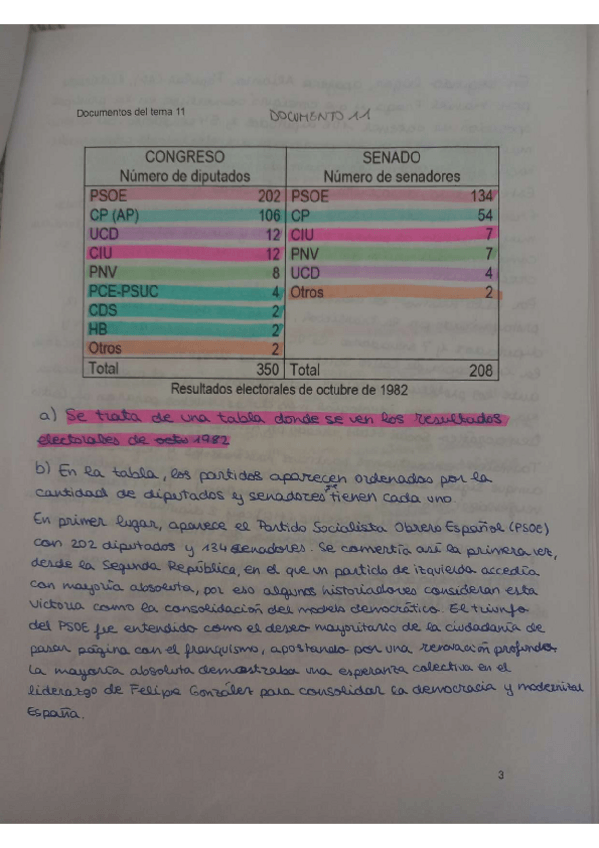 Documentos del tema 11
DOCUMENTO 11
CONGRESO
Número de diputados
SENADO
Número de senadores
PSOE 202 PSOE 134
CP (AP) 106 CP 54
UCD 12 CIU 7
CIU 12 PNV 7
PNV 8 UCD 4
PCE-PSUC 4 Otros 2
CDS 2
HB 2
Otros 2
Total 350 Total 208
Resultados electorales de octubre de 1982
a) Se trata de una tabla donde se ven los resultados
electorales de octu 1982
b) En la tabla, los partidos aparecen ordenados por la
cantidad de diputados y senadores tienen cada uno.
En primer lugar, aparece el Partido Socialista Obrero Español (PSOE)
con 202 diputados y 134 senadores. Se comertía así la primera vez,
desde la Segunda República, en el que un partido de izquierda accedía
con mayoría absoluta, por eso algunos historiadores consideran esta
victoria como la consolidación del modelo democrático. El triunfo
del PSOE fue entendido como el deseo mayoritario de la ciudadanía de
pasar página con el franquismo, apostando por una renovación profunda.
La mayoría absoluta demostraba una esperanza colectiva en el
liderazgo de Felipe González para consolidar la democracia y modernizar
España.
3